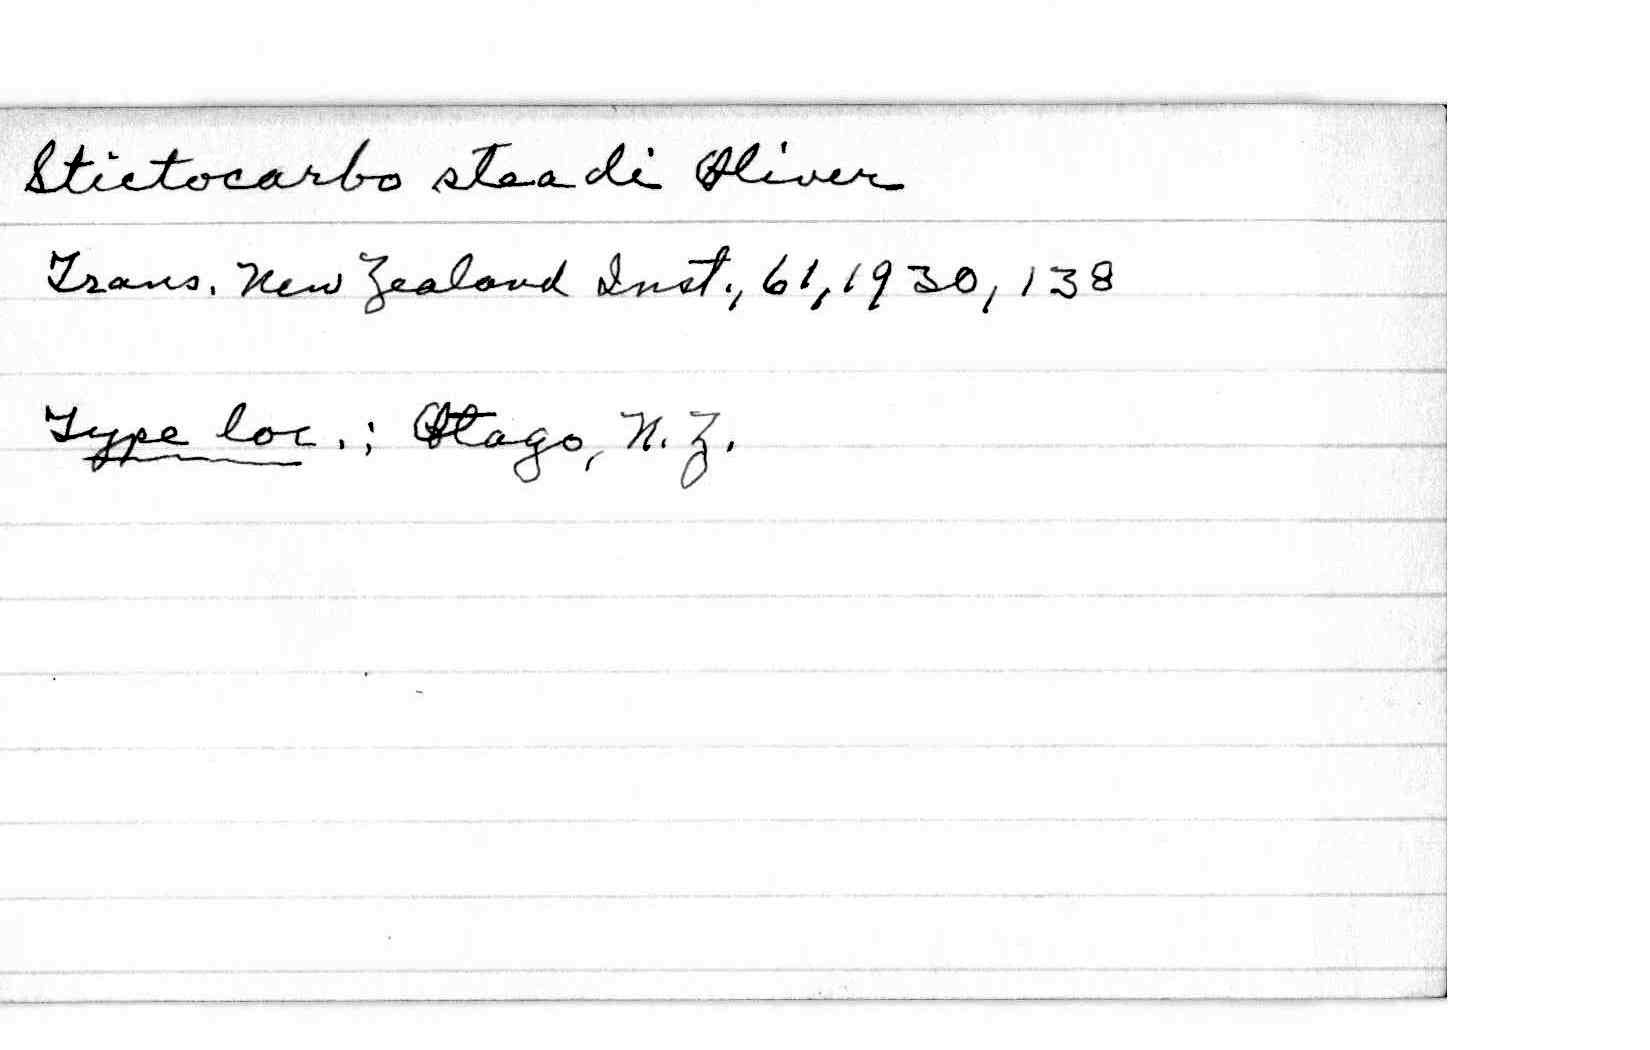 Stictocarbo steadi Oliver
Trans. New Zealand Inst., 61, 1930, 138
Type loc.; Otago, N.Z.